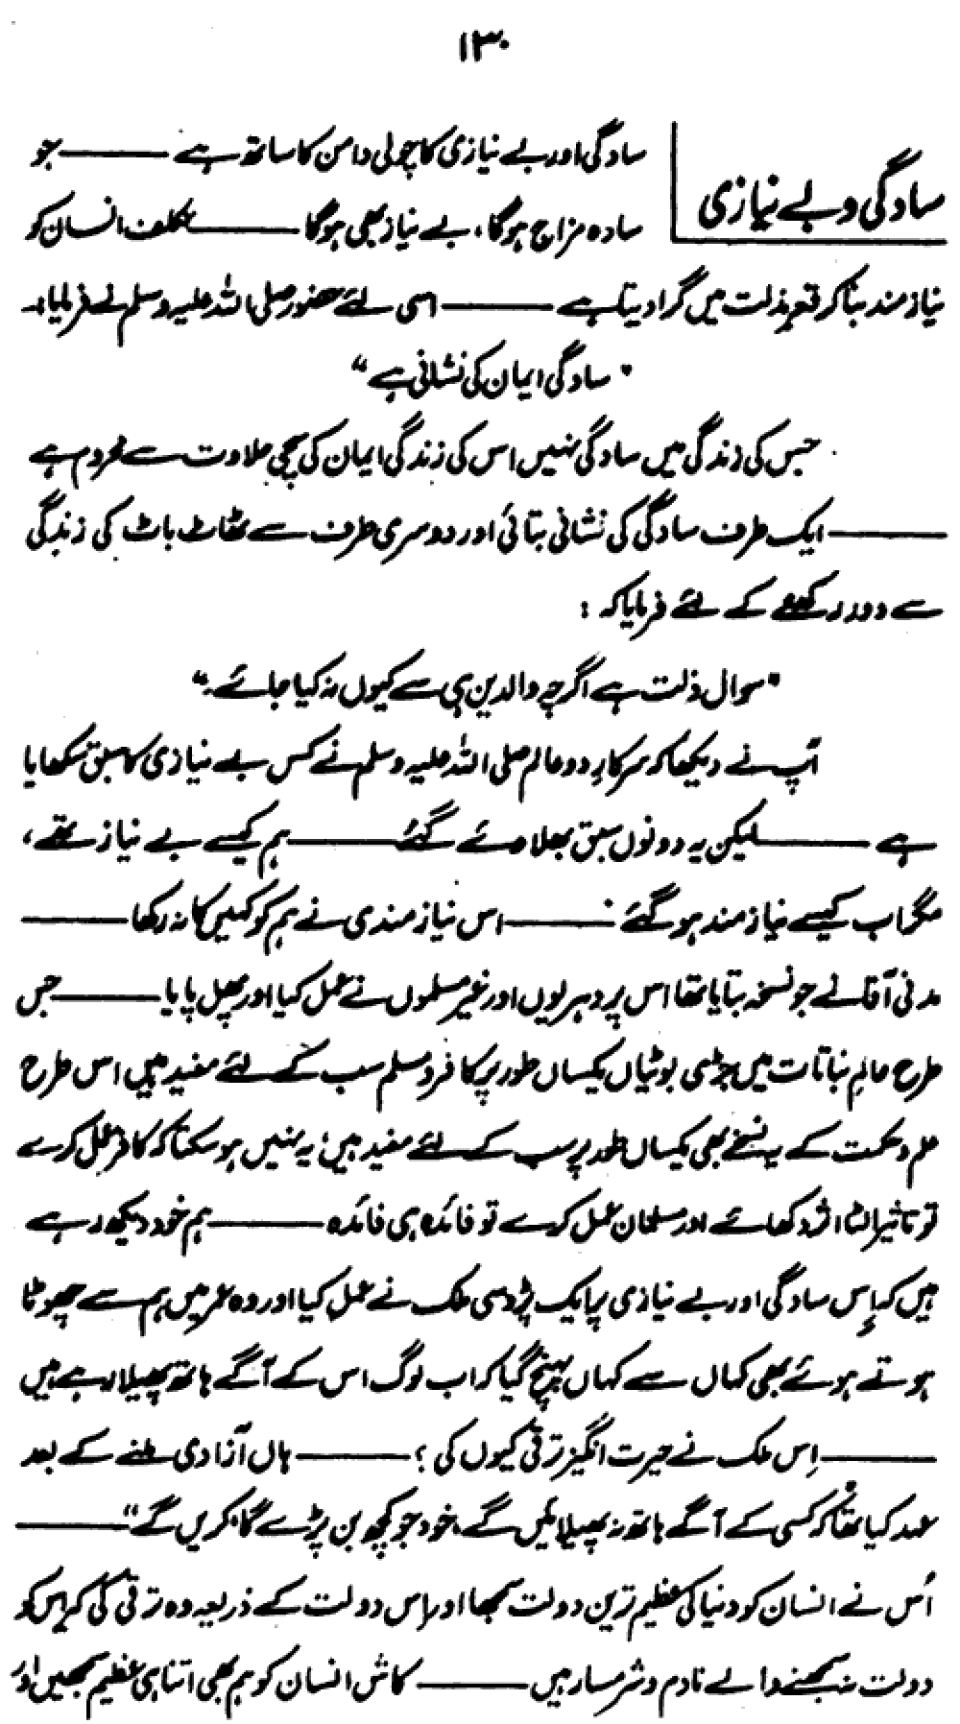 ۱۳۰
سادگی و بے نیازی
سادگی اور بے نیازی کا چولی دامن کا ساتھ ہے ——— جو
سادہ مزاج ہوگا، بے نیاز بھی ہوگا ——— تکلف انسان کو
نیاز مند بنا کر قعرِ مذلت میں گرا دیتا ہے ——— اسی لئے حضور صلی اللہ علیہ وسلم نے فرمایا:۔
"سادگی ایمان کی نشانی ہے"
جس کی زندگی میں سادگی نہیں اس کی زندگی ایمان کی سچی حلاوت سے محروم ہے
——— ایک طرف سادگی کی نشانی بتائی اور دوسری طرف سے ٹھاٹ باٹ کی زندگی
سے دور رکھنے کے لئے فرمایا کہ :
"سوال ذلت ہے اگرچہ والدین ہی سے کیوں نہ کیا جائے۔"
آپ نے دیکھا کہ سرکارِ دو عالم صلی اللہ علیہ وسلم نے کس بے نیازی کا سبق سکھایا
ہے ——— لیکن یہ دونوں سبق بھلا دئے گئے ——— ہم کیسے بے نیاز تھے،
مگر اب کیسے نیاز مند ہو گئے ——— اس نیاز مندی نے ہم کو کہیں کا نہ رکھا ———
مدنی آقا نے جو نسخہ بتایا تھا اس پر دہریوں اور غیر مسلموں نے عمل کیا اور پھل پایا ——— جس
طرح عالمِ نباتات میں جڑی بوٹیاں یکساں طور پر کافر و مسلم سب کے لئے مفید ہیں اس طرح
علم و حکمت کے یہ نسخے بھی یکساں طور پر سب کے لئے مفید ہیں؛ یہ نہیں ہو سکتا کہ کافر عمل کرے
تو تاثیر الٹا اثر دکھائے اور مسلمان عمل کرے تو فائدہ ہی فائدہ ——— ہم خود دیکھ رہے
ہیں کہ اِس سادگی اور بے نیازی پر ایک پڑوسی ملک نے عمل کیا اور وہ عمر میں ہم سے چھوٹا
ہوتے ہوئے بھی کہاں سے کہاں پہنچ گیا کہ اب لوگ اس کے آگے ہاتھ پھیلا رہے ہیں
——— اِس ملک نے حیرت انگیز ترقی کیوں کی ؟ ——— ہاں آزادی ملنے کے بعد
عہد کیا تھا کہ "کسی کے آگے ہاتھ نہ پھیلائیں گے، خود جو کچھ بن پڑے گا، کریں گے" ———
اُس نے انسان کو دنیا کی عظیم ترین دولت سمجھا اور اِس دولت کے ذریعہ وہ ترقی کی کہ اس کو
دولت نہ سمجھنے والے نادم و شرمسار ہیں ——— کاش انسان کو ہم بھی اتنا ہی عظیم سمجھیں اور